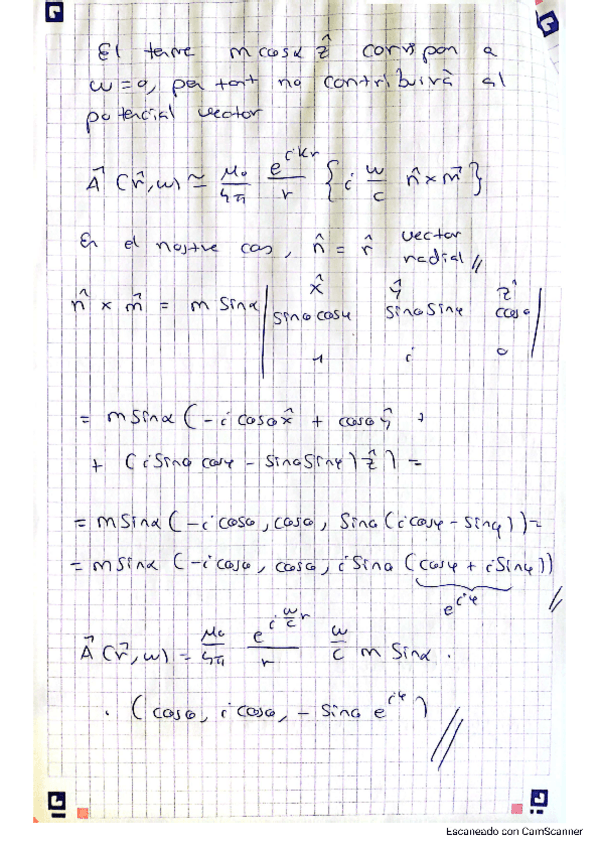 El terme m cosα ẑ correspon a
ω=0, per tant no contribuirà al
potencial vector
A⃗ (r⃗, ω) ≃ μ₀/4π e^{ikr}/r { i ω/c n̂×m⃗ }
En el nostre cas, n̂ = r̂ vector radial //
n̂ × m⃗ = m sinα | x̂ ŷ ẑ |
| sinθ cosφ sinθ sinφ cosθ |
| 1 i 0 |
= m sinα (-i cosθ x̂ + cosθ ŷ +
+ (i sinθ cosφ - sinθ sinφ) ẑ) =
= m sinα (-i cosθ, cosθ, sinθ (i cosφ - sinφ)) =
= m sinα (-i cosθ, cosθ, i sinθ (cosφ + i sinφ))
e^{iφ} //
A⃗ (r⃗, ω) = μ₀/4π e^{i ω/c r}/r ω/c m sinα ·
· (cosθ, i cosθ, - sinθ e^{iφ}) //
Escaneado con CamScanner